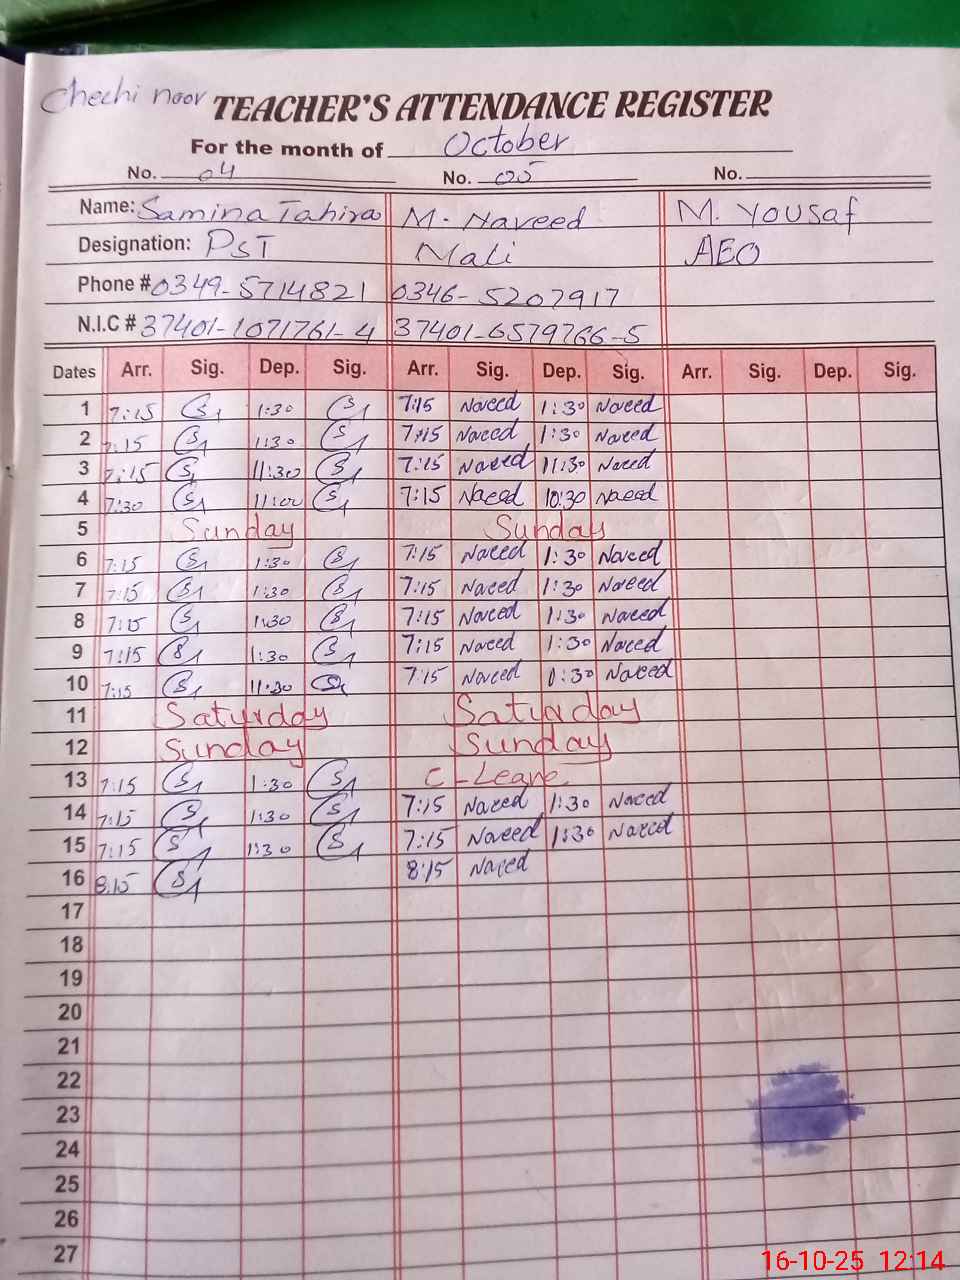 Chechi noor
TEACHER'S ATTENDANCE REGISTER
For the month of October
No. 04 No. 05 No.
Name: Samina Tahira M. Naveed M. Yousaf
Designation: PST Mali AEO
Phone # 0349-5714821 0346-5207917
N.I.C # 37401-1071761-4 37401-6579766-5
Dates Arr. Sig. Dep. Sig. Arr. Sig. Dep. Sig. Arr. Sig. Dep. Sig.
1 7:15 1:30 7:15 Naveed 1:30 Naveed
2 7:15 1:30 7:15 Naveed 1:30 Naveed
3 7:15 11:30 7:15 Naveed 11:30 Naveed
4 7:30 11:00 7:15 Naveed 10:30 Naveed
5 Sunday Sunday
6 7:15 1:30 7:15 Naveed 1:30 Naveed
7 7:15 1:30 7:15 Naveed 1:30 Naveed
8 7:15 1:30 7:15 Naveed 1:30 Naveed
9 7:15 1:30 7:15 Naveed 1:30 Naveed
10 7:15 11:30 7:15 Naveed Naveed
11 Saturday Saturday
12 Sunday Sunday
13 7:15 1:30 C-Leave
14 7:15 1:30 7:15 Naveed 1:30 Naveed
15 7:15 1:30 7:15 Naveed 1:30 Naveed
16 8:15 8:15 Naveed
17
18
19
20
21
22
23
24
25
26
27
16-10-25 12:14